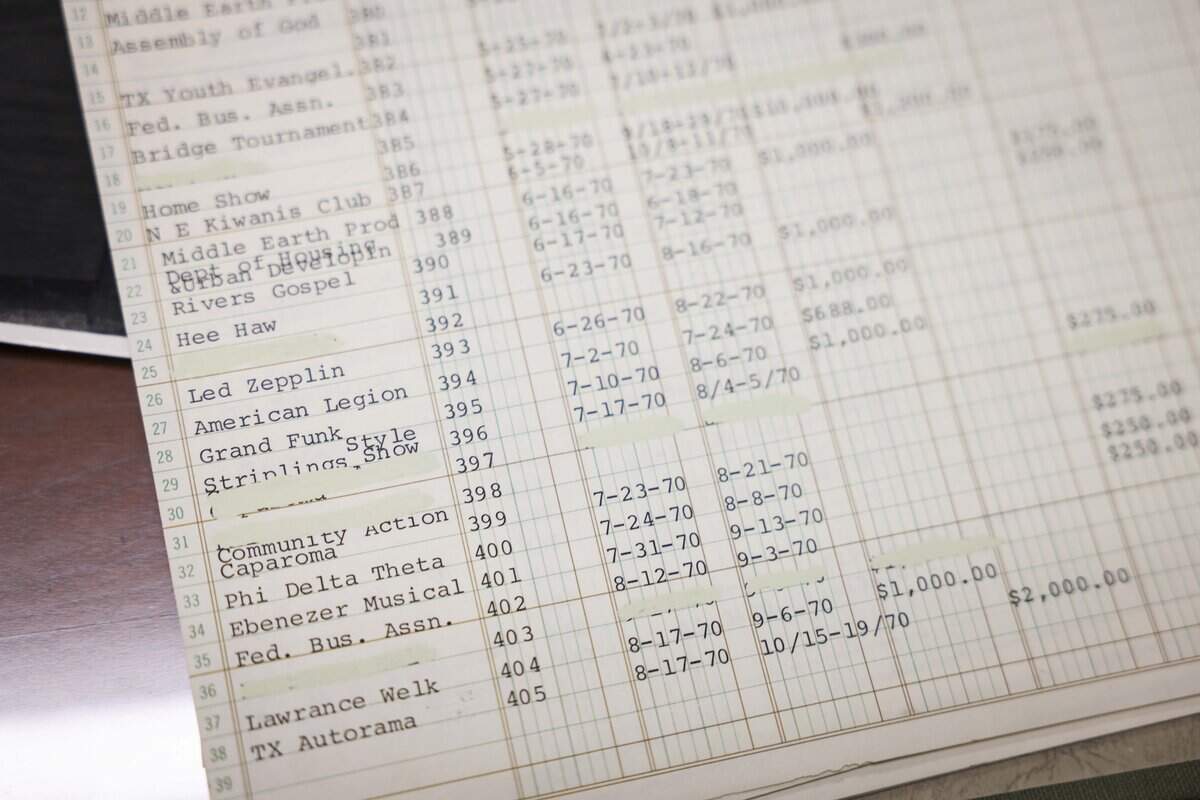 Middle Earth
Assembly of God
TX Youth Evangel. 382
Fed. Bus. Assn. 383
Bridge Tournament 384
385
19 Home Show 386 5-28-70
20 N E Kiwanis Club 387 6-5-70 10/9-11/70
21 Middle Earth Prod 388 6-16-70 7-23-70 $1,000.00
22 Dept of Housing &Urban Developin 389 6-16-70 6-18-70
23 Rivers Gospel 390 6-17-70 7-12-70
24 Hee Haw 391 6-23-70 8-16-70 $1,000.00
25 392
26 Led Zepplin 393 6-26-70 8-22-70 $1,000.00
27 American Legion 394 7-2-70 7-24-70 $688.00
28 Grand Funk 395 7-10-70 8-6-70 $1,000.00
29 Striplings Style Show 396 7-17-70 8/4-5/70 $275.00
30 397
31 398
32 Community Action Caparoma 399 7-23-70 8-21-70 $275.00
33 Phi Delta Theta 400 7-24-70 8-8-70 $250.00
34 Ebenezer Musical 401 7-31-70 9-13-70 $250.00
35 Fed. Bus. Assn. 402 8-12-70 9-3-70
36 403
37 Lawrance Welk 404 8-17-70 9-6-70 $1,000.00
38 TX Autorama 405 8-17-70 10/15-19/70 $2,000.00
39